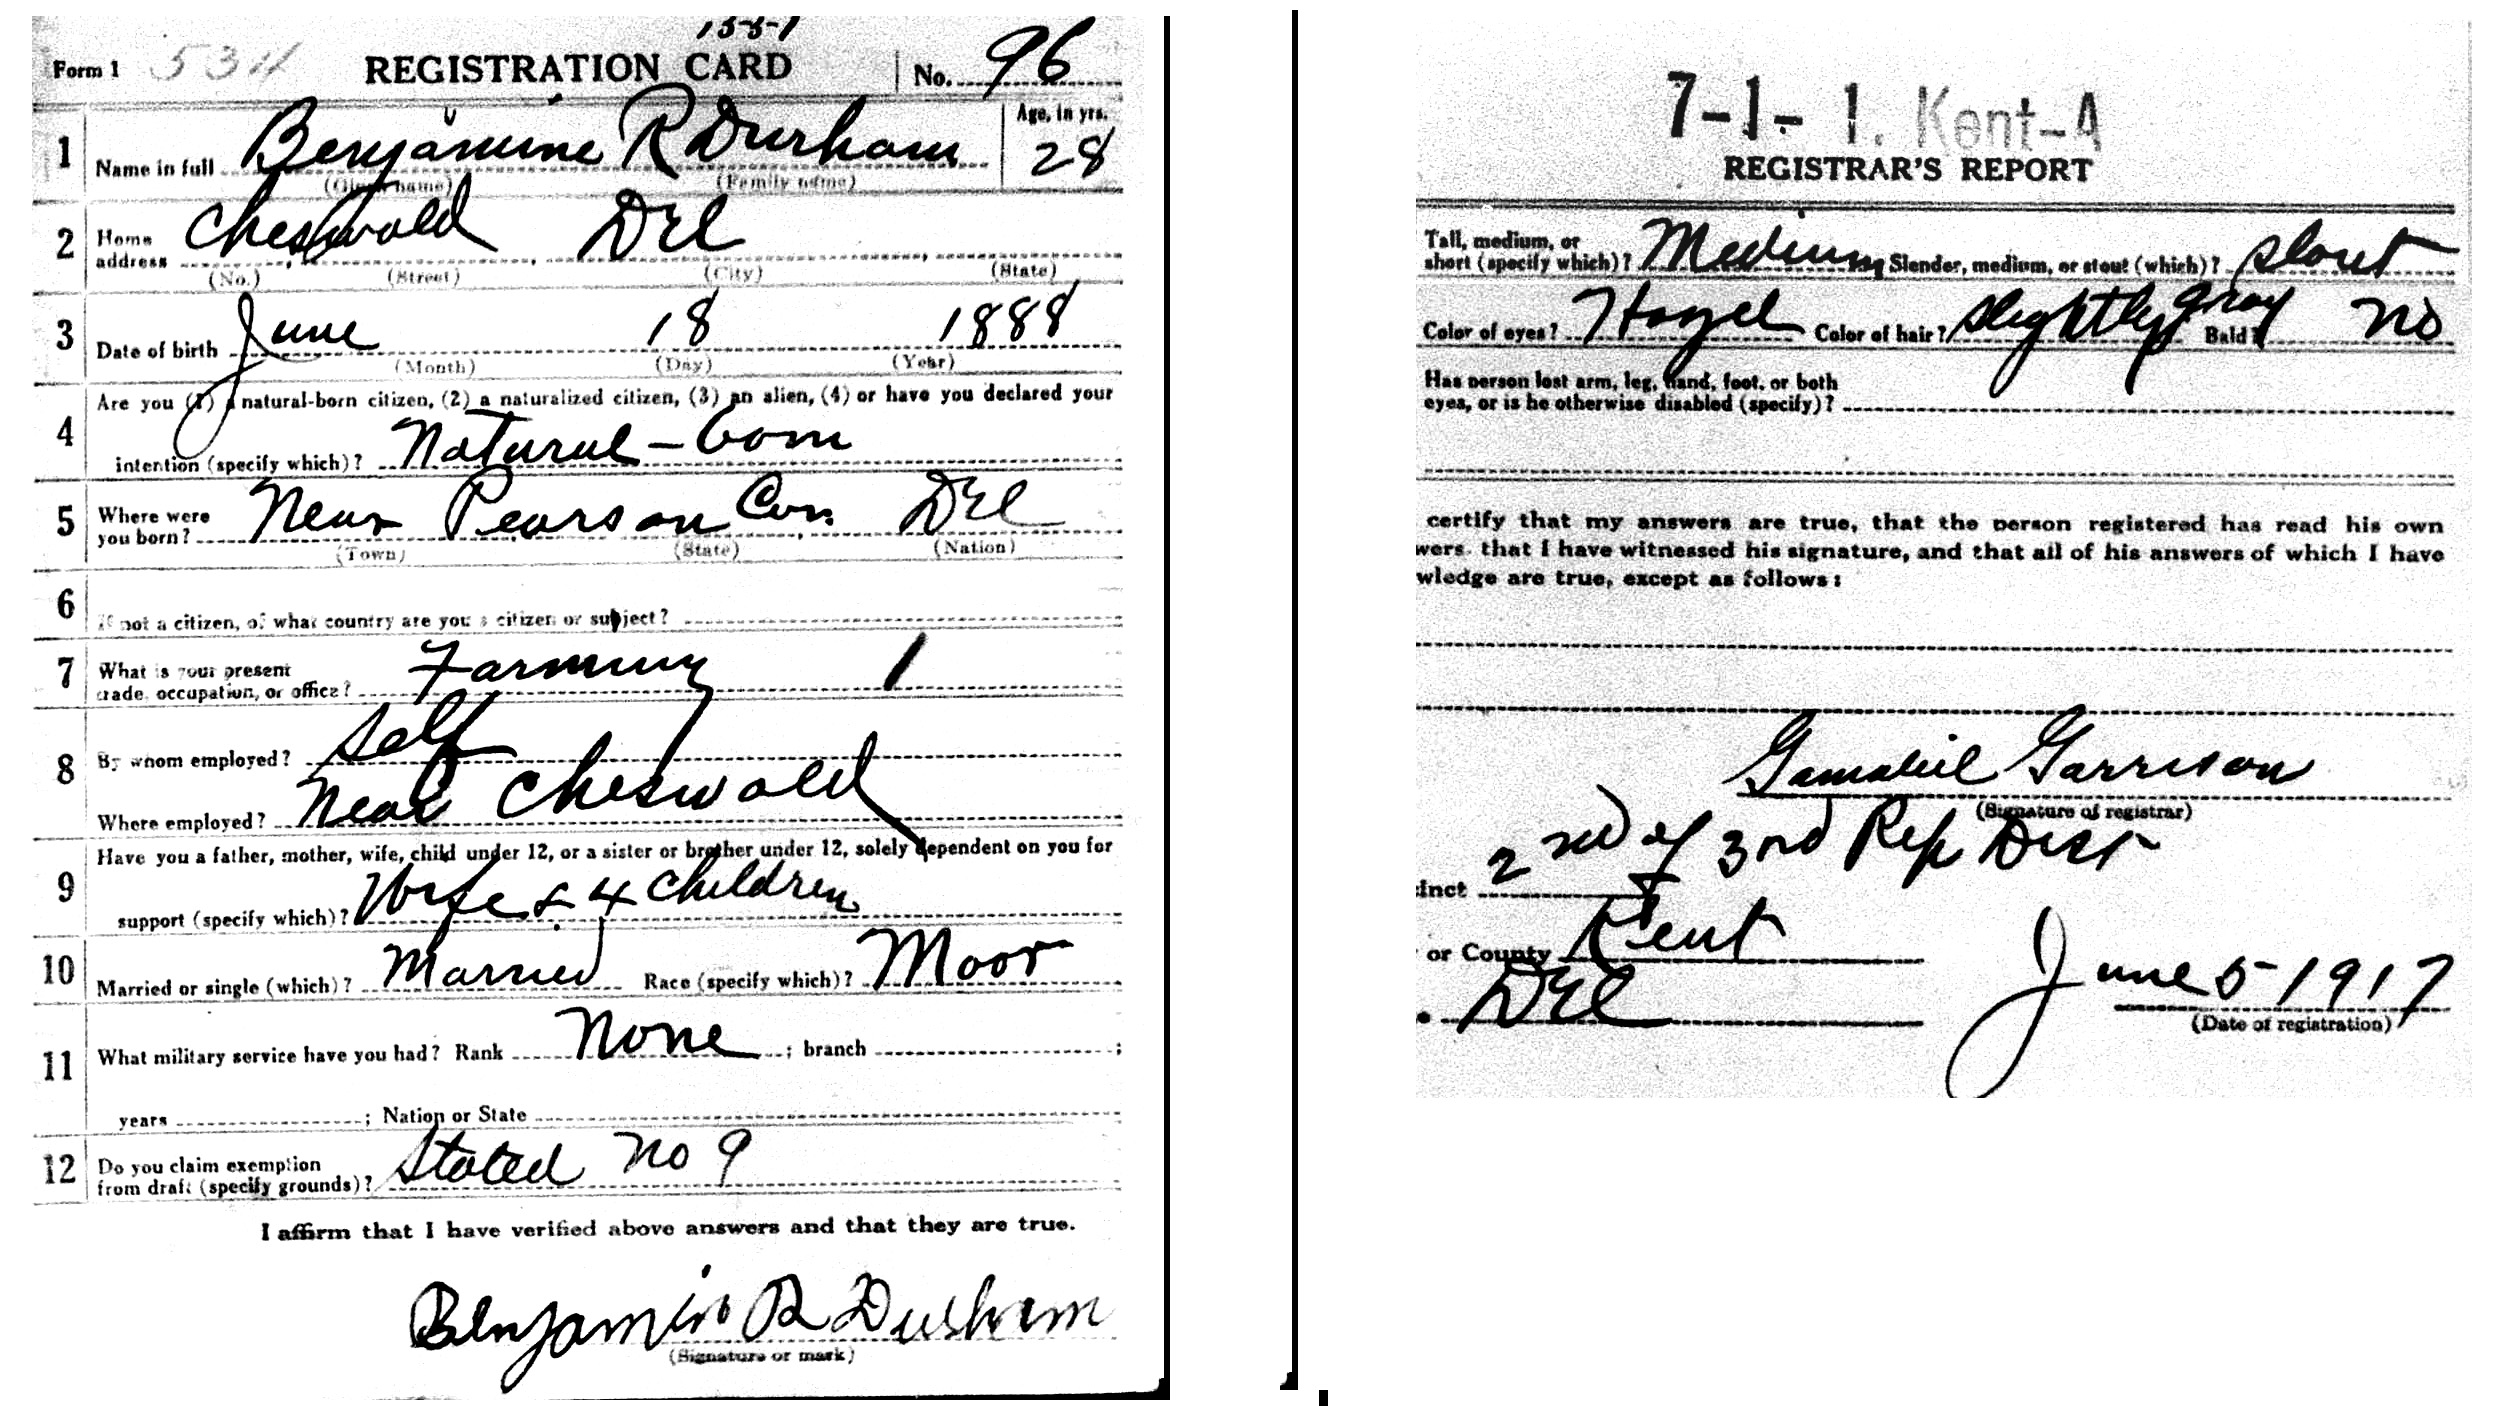 1557
Form 1 534 REGISTRATION CARD No. 96
1 Name in full Benjamine R Durham Age, in yrs. 28
(Given name) (Family name)
2 Home address Cheswold Del
(No.) (Street) (City) (State)
3 Date of birth June 18 1888
(Month) (Day) (Year)
4 Are you (1) a natural-born citizen, (2) a naturalized citizen, (3) an alien, (4) or have you declared your
intention (specify which)? Natural-born
5 Where were you born? Near Pearson Cor. Del
(Town) (State) (Nation)
6 If not a citizen, of what country are you a citizen or subject?
7 What is your present trade, occupation, or office? Farming 1
8 By whom employed? Self
Where employed? Near Cheswold
9 Have you a father, mother, wife, child under 12, or a sister or brother under 12, solely dependent on you for
support (specify which)? Wife & 4 children
10 Married or single (which)? Married Race (specify which)? Moor
11 What military service have you had? Rank None ; branch ;
years ; Nation or State
12 Do you claim exemption from draft (specify grounds)? Stated no 9
I affirm that I have verified above answers and that they are true.
Benjamin R Durham
(Signature or mark)
7-1-1. Kent-A
REGISTRAR'S REPORT
Tall, medium, or short (specify which)? Medium Slender, medium, or stout (which)? Stout
Color of eyes? Hazel Color of hair? Slightly gray Bald? No
Has person lost arm, leg, hand, foot, or both
eyes, or is he otherwise disabled (specify)?
certify that my answers are true, that the person registered has read his own
wers, that I have witnessed his signature, and that all of his answers of which I have
wledge are true, except as follows:
Gamaliel Garrison
(Signature of registrar)
cinct 2nd of 3rd Rep Dist
or County Kent
e Del June 5 1917
(Date of registration)